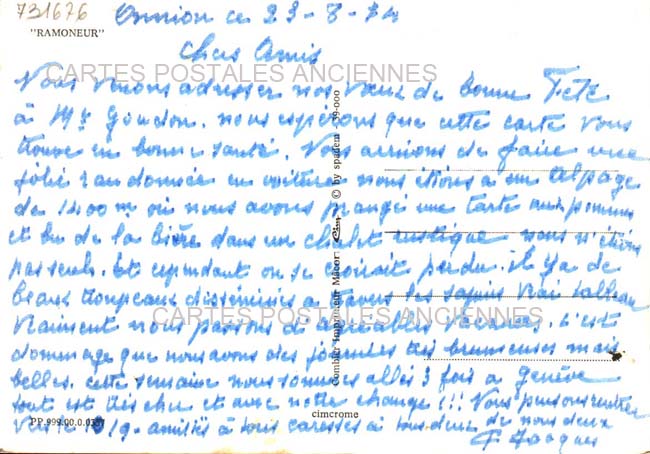 731676
Onnion ce 23-8-74
"RAMONEUR"
Chers Amis
CARTES POSTALES ANCIENNES
Nous venons adresser nos vœux de bonne Fete
à Mr Goudon. nous esperons que cette carte vous
trouve en bonne santé. Nous arrivons de faire une
jolie randonnée en voiture nous étions a un Alpage
de 1400 m où nous avons mangé une tarte aux pommes
et bu de la bière dans un chalet rustique nous n'étions
pas seuls. Et cependant on se croirait perdu. il y a de
beaux troupeaux disséminés a travers les sapins vrai tableau
CARTES POSTALES ANCIENNES
vraiment nous passons d'agréables vacances. c'est
dommage que nous avons des journées très brumeuses mais
belles. cette semaine nous sommes allés 3 fois a Genève
tout est très cher et avec notre change !!! Nous pensons rentrer
vers le 9/9 - amitiés à tous caresses à tous deux de nous deux
Combier Imprimeur Macon Cim © by spadem 59-000
cimcrome
PP.999.00.0.0337